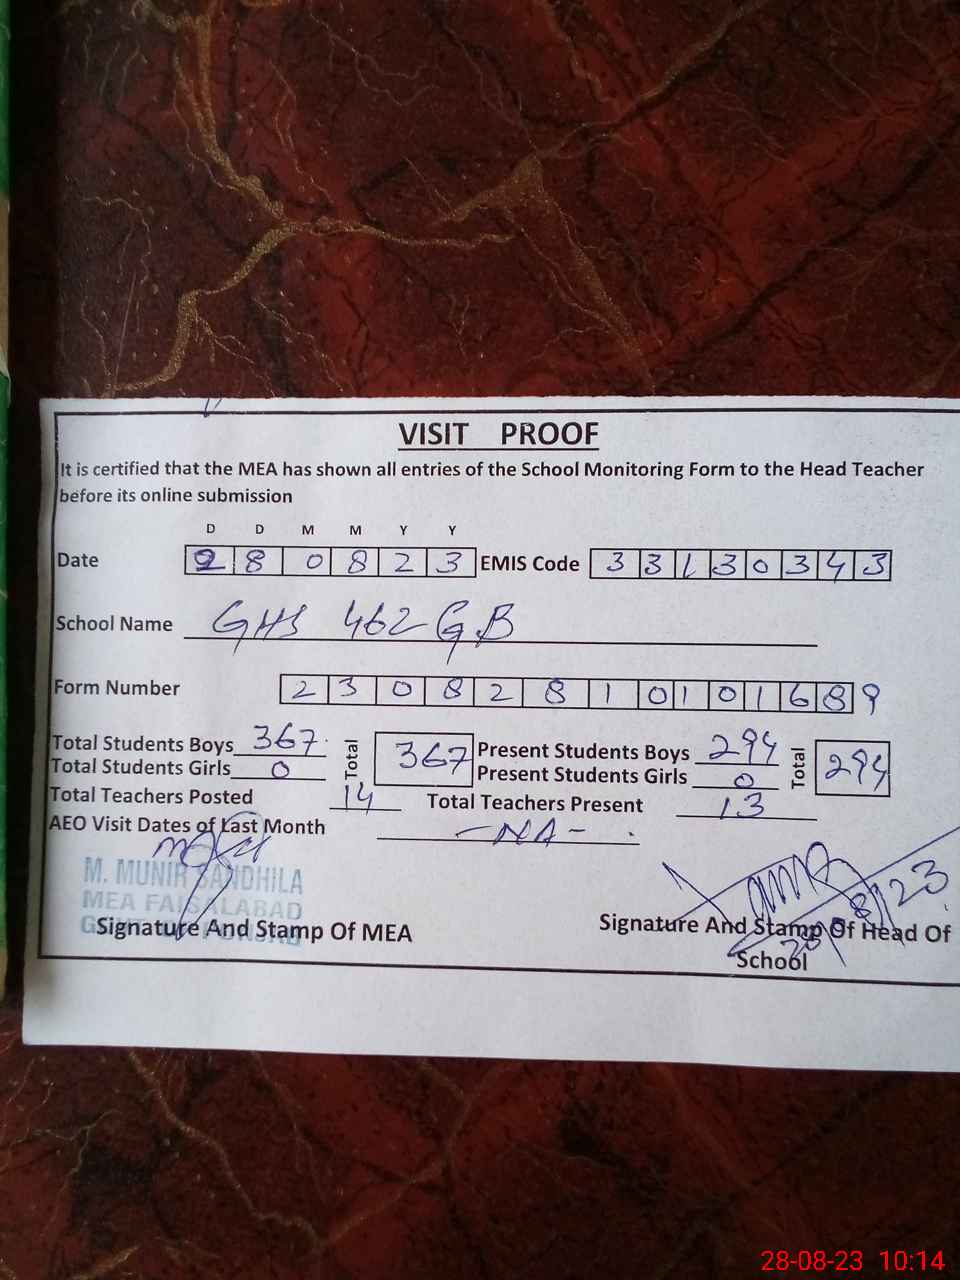 VISIT PROOF
It is certified that the MEA has shown all entries of the School Monitoring Form to the Head Teacher
before its online submission
D D M M Y Y
Date 2 8 0 8 2 3 EMIS Code 3 3 1 3 0 3 4 3
School Name GHS 462 GB
Form Number 2 3 0 8 2 8 1 0 1 0 1 6 8 9
Total Students Boys 367 Total 367 Present Students Boys 294 Total 294
Total Students Girls 0 Present Students Girls 0
Total Teachers Posted 14 Total Teachers Present 13
AEO Visit Dates of Last Month -NA-
M. MUNIR SANDHILA
MEA FAISALABAD
Signature And Stamp Of MEA
28/8/23
Signature And Stamp Of Head Of
School
28-08-23 10:14